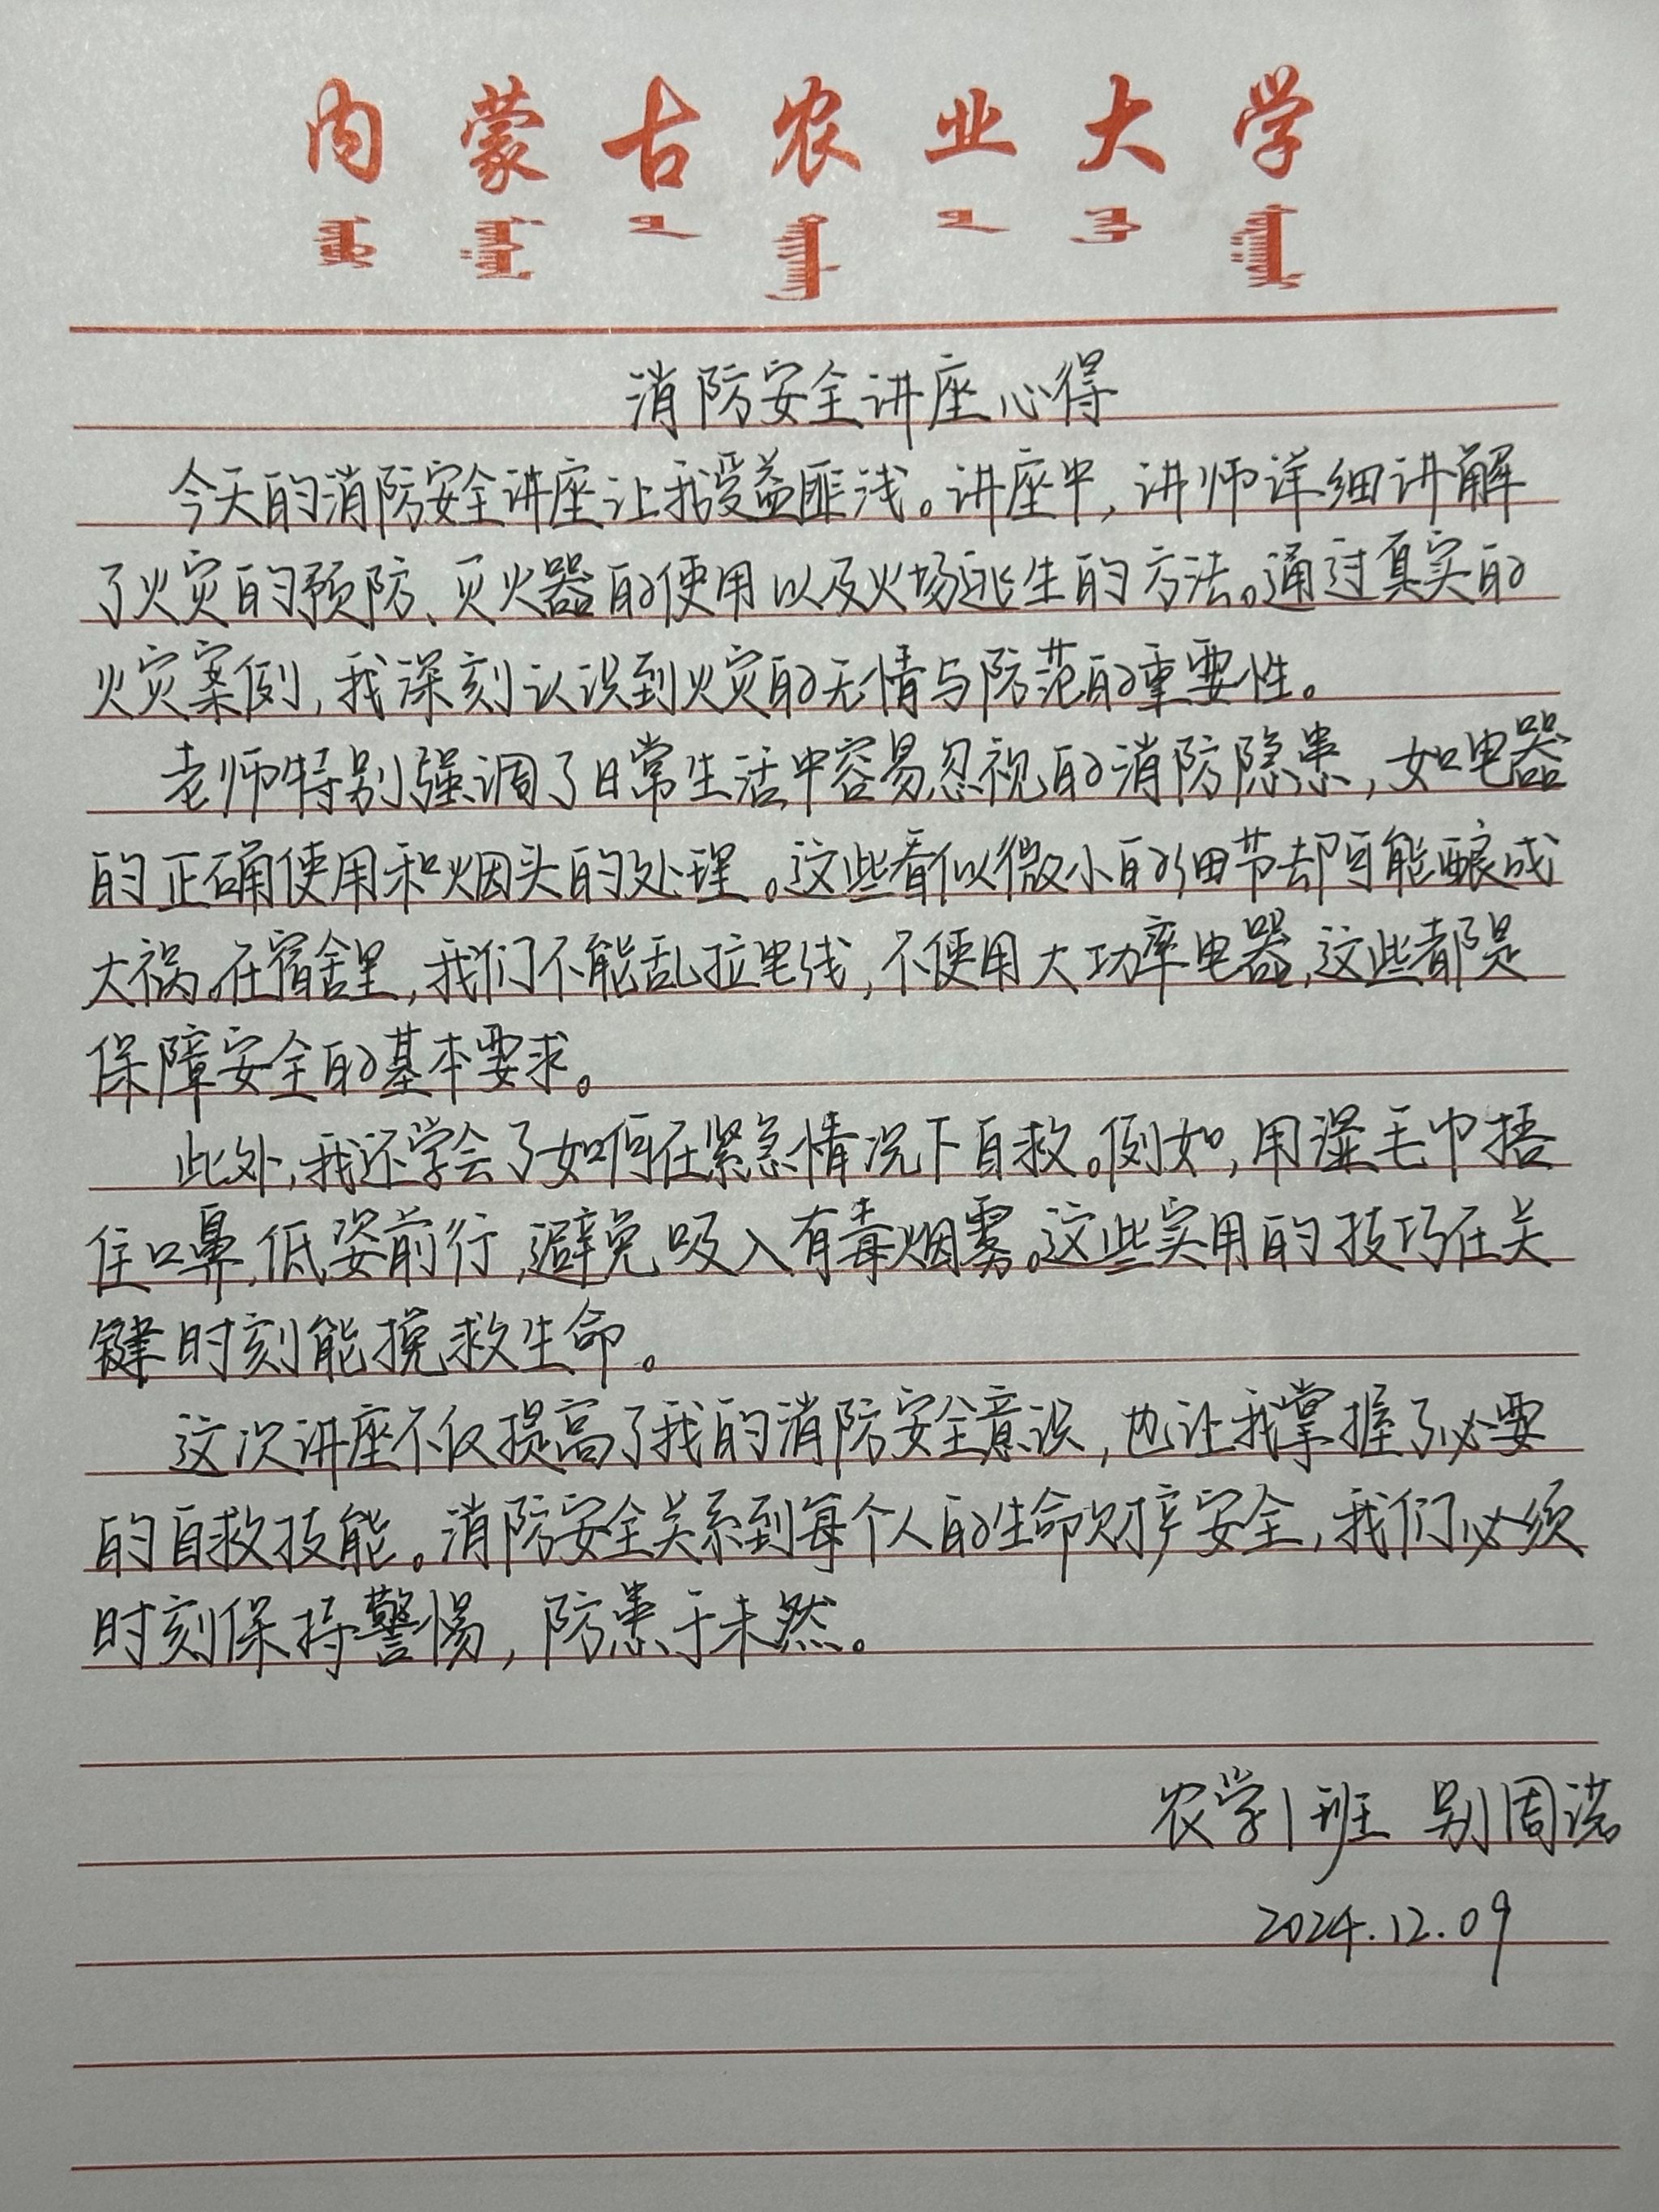 内蒙古农业大学
消防安全讲座心得
今天的消防安全讲座让我受益匪浅。讲座中，讲师详细讲解
了火灾的预防、灭火器的使用以及火场逃生的方法。通过真实的
火灾案例，我深刻认识到火灾的无情与防范的重要性。
老师特别强调了日常生活中容易忽视的消防隐患，如电器
的正确使用和烟头的处理。这些看似微小的细节却可能酿成
大祸。在宿舍里，我们不能乱拉电线，不使用大功率电器，这些都是
保障安全的基本要求。
此外，我还学会了如何在紧急情况下自救。例如，用湿毛巾捂
住口鼻，低姿前行，避免吸入有毒烟雾。这些实用的技巧在关
键时刻能挽救生命。
这次讲座不仅提高了我的消防安全意识，也让我掌握了必要
的自救技能。消防安全关系到每个人的生命财产安全，我们必须
时刻保持警惕，防患于未然。
农学1班 别周诺
2024.12.09